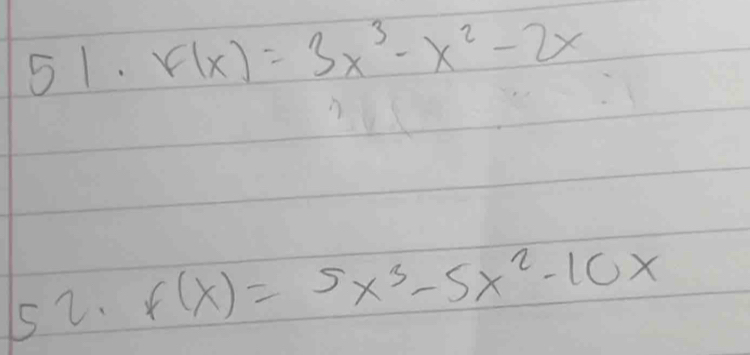 51. f(x) = 3x³ - x² - 2x
52. f(x) = 5x³ - 5x² - 10x